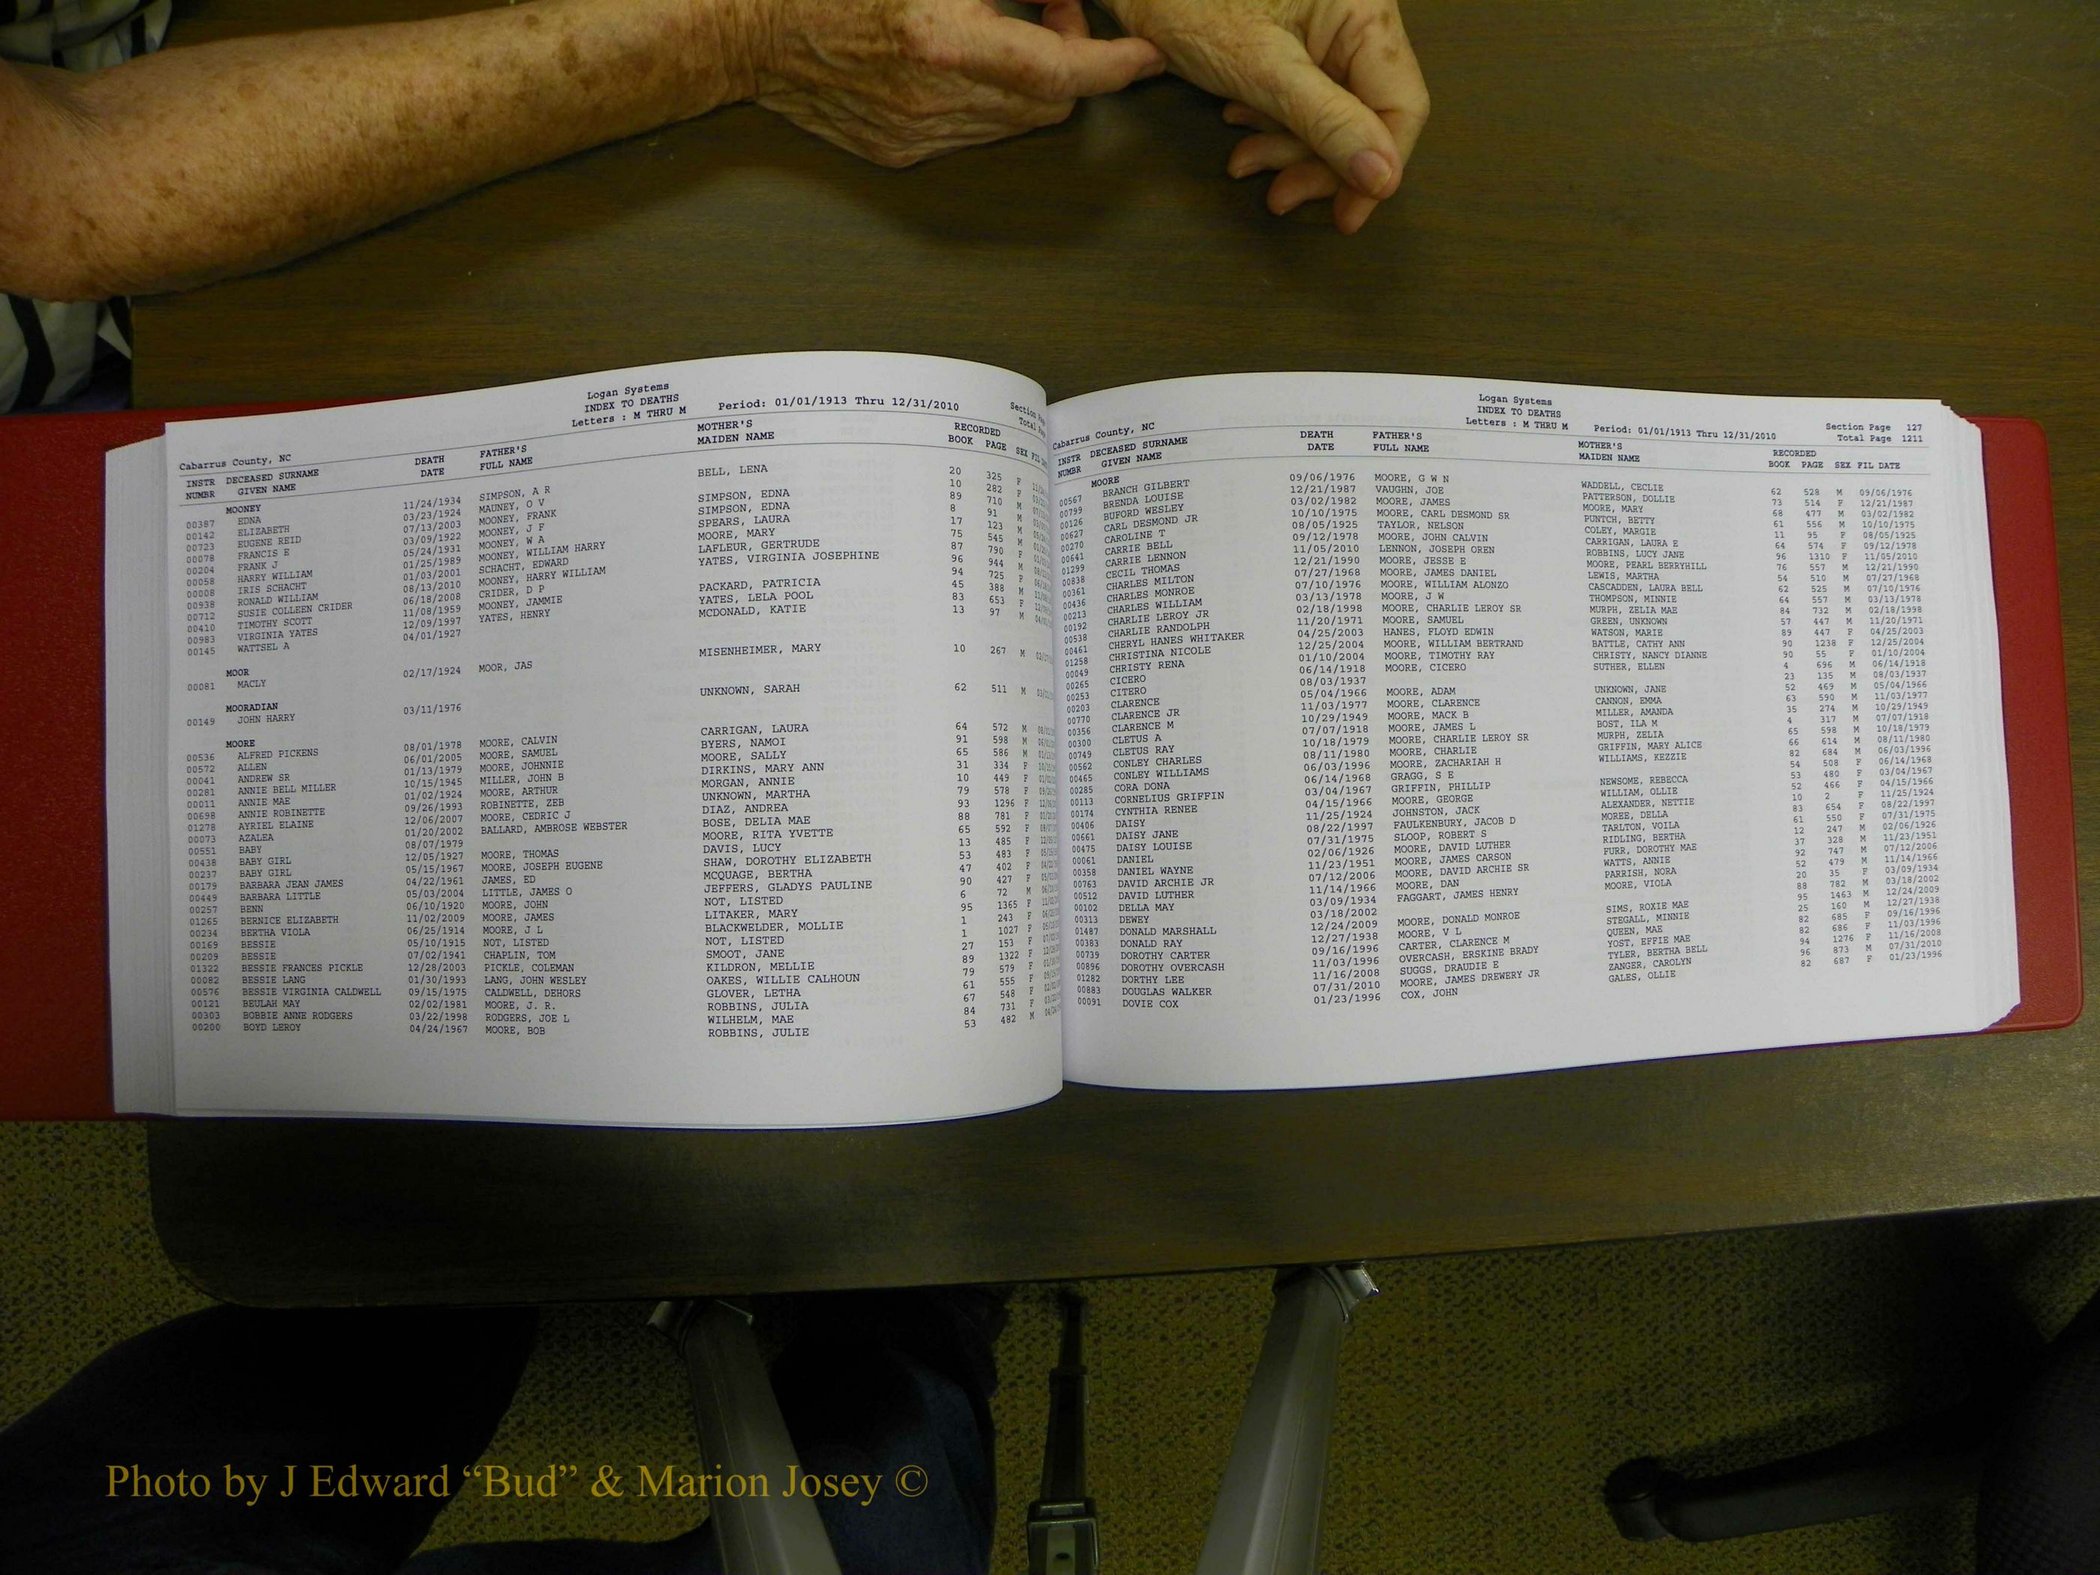 Logan Systems
INDEX TO DEATHS
Letters : M THRU M Period: 01/01/1913 Thru 12/31/2010
Cabarrus County, NC
INSTR DECEASED SURNAME DEATH FATHER'S MOTHER'S RECORDED
NUMBR GIVEN NAME DATE FULL NAME MAIDEN NAME BOOK PAGE SEX
MOONEY
00387 EDNA 11/24/1934 SIMPSON, A R BELL, LENA 20 325 F
00142 ELIZABETH 03/23/1924 MAUNEY, O V 10 282 F
00723 EUGENE REID 07/13/2003 MOONEY, FRANK SIMPSON, EDNA 89 710 M
00078 FRANCIS E 03/09/1922 MOONEY, J F SIMPSON, EDNA 8 91 M
00204 FRANK J 05/24/1931 MOONEY, W A SPEARS, LAURA 17 123 M
00058 HARRY WILLIAM 01/25/1989 MOONEY, WILLIAM HARRY MOORE, MARY 75 545 M
00008 IRIS SCHACHT 01/03/2001 SCHACHT, EDWARD LAFLEUR, GERTRUDE 87 790 F
00938 RONALD WILLIAM 08/13/2010 MOONEY, HARRY WILLIAM YATES, VIRGINIA JOSEPHINE 96 944 M
00712 SUSIE COLLEEN CRIDER 06/18/2008 CRIDER, D P 94 725 F
00410 TIMOTHY SCOTT 11/08/1959 MOONEY, JAMMIE PACKARD, PATRICIA 45 388 M
00983 VIRGINIA YATES 12/09/1997 YATES, HENRY YATES, LELA POOL 83 653 F
00145 WATTSEL A 04/01/1927 MCDONALD, KATIE 13 97 M
MOOR
00081 MACLY 02/17/1924 MOOR, JAS MISENHEIMER, MARY 10 267 M
MOORADIAN
00149 JOHN HARRY 03/11/1976 UNKNOWN, SARAH 62 511 M
MOORE
00536 ALFRED PICKENS 08/01/1978 MOORE, CALVIN CARRIGAN, LAURA 64 572 M
00572 ALLEN 06/01/2005 MOORE, SAMUEL BYERS, NAMOI 91 598 M
00041 ANDREW SR 01/13/1979 MOORE, JOHNNIE MOORE, SALLY 65 586 M
00281 ANNIE BELL MILLER 10/15/1945 MILLER, JOHN B DIRKINS, MARY ANN 31 334 F
00011 ANNIE MAE 01/02/1924 MOORE, ARTHUR MORGAN, ANNIE 10 449 F
00698 ANNIE ROBINETTE 09/26/1993 ROBINETTE, ZEB UNKNOWN, MARTHA 79 578 F
01278 AYRIEL ELAINE 12/06/2007 MOORE, CEDRIC J DIAZ, ANDREA 93 1296 F
00073 AZALEA 01/20/2002 BALLARD, AMBROSE WEBSTER BOSE, DELIA MAE 88 781 F
00551 BABY 08/07/1979 MOORE, RITA YVETTE 65 592 F
00438 BABY GIRL 12/05/1927 MOORE, THOMAS DAVIS, LUCY 13 485 F
00237 BABY GIRL 05/15/1967 MOORE, JOSEPH EUGENE SHAW, DOROTHY ELIZABETH 53 483 F
00179 BARBARA JEAN JAMES 04/22/1961 JAMES, ED MCQUAGE, BERTHA 47 402 F
00449 BARBARA LITTLE 05/03/2004 LITTLE, JAMES O JEFFERS, GLADYS PAULINE 90 427 F
00257 BENN 06/10/1920 MOORE, JOHN NOT, LISTED 6 72 M
01265 BERNICE ELIZABETH 11/02/2009 MOORE, JAMES LITAKER, MARY 95 1365 F
00234 BERTHA VIOLA 06/25/1914 MOORE, J L BLACKWELDER, MOLLIE 1 243 F
00169 BESSIE 05/10/1915 NOT, LISTED NOT, LISTED 1 1027 F
00209 BESSIE 07/02/1941 CHAPLIN, TOM SMOOT, JANE 27 153 F
01322 BESSIE FRANCES PICKLE 12/28/2003 PICKLE, COLEMAN KILDRON, MELLIE 89 1322 F
00082 BESSIE LANG 01/30/1993 LANG, JOHN WESLEY OAKES, WILLIE CALHOUN 79 579 F
00576 BESSIE VIRGINIA CALDWELL 09/15/1975 CALDWELL, DEHORS GLOVER, LETHA 61 555 F
00121 BEULAH MAY 02/02/1981 MOORE, J. R. ROBBINS, JULIA 67 548 F
00303 BOBBIE ANNE RODGERS 03/22/1998 RODGERS, JOE L WILHELM, MAE 84 731 F
00200 BOYD LEROY 04/24/1967 MOORE, BOB ROBBINS, JULIE 53 482 M
Logan Systems
INDEX TO DEATHS
Letters : M THRU M Period: 01/01/1913 Thru 12/31/2010 Section Page 127
Cabarrus County, NC Total Page 1211
INSTR DECEASED SURNAME DEATH FATHER'S MOTHER'S RECORDED
NUMBR GIVEN NAME DATE FULL NAME MAIDEN NAME BOOK PAGE SEX FIL DATE
MOORE
00567 BRANCH GILBERT 09/06/1976 MOORE, G W N WADDELL, CECLIE 62 528 M 09/06/1976
00799 BRENDA LOUISE 12/21/1987 VAUGHN, JOE PATTERSON, DOLLIE 73 514 F 12/21/1987
00126 BUFORD WESLEY 03/02/1982 MOORE, JAMES MOORE, MARY 68 477 M 03/02/1982
00627 CARL DESMOND JR 10/10/1975 MOORE, CARL DESMOND SR PUNTCH, BETTY 61 556 M 10/10/1975
00270 CAROLINE T 08/05/1925 TAYLOR, NELSON COLEY, MARGIE 11 95 F 08/05/1925
00641 CARRIE BELL 09/12/1978 MOORE, JOHN CALVIN CARRIGAN, LAURA E 64 574 F 09/12/1978
01299 CARRIE LENNON 11/05/2010 LENNON, JOSEPH OREN ROBBINS, LUCY JANE 96 1310 F 11/05/2010
00838 CECIL THOMAS 12/21/1990 MOORE, JESSE E MOORE, PEARL BERRYHILL 76 557 M 12/21/1990
00361 CHARLES MILTON 07/27/1968 MOORE, JAMES DANIEL LEWIS, MARTHA 54 510 M 07/27/1968
00436 CHARLES MONROE 07/10/1976 MOORE, WILLIAM ALONZO CASCADDEN, LAURA BELL 62 525 M 07/10/1976
00213 CHARLES WILLIAM 03/13/1978 MOORE, J W THOMPSON, MINNIE 64 557 M 03/13/1978
00192 CHARLIE LEROY JR 02/18/1998 MOORE, CHARLIE LEROY SR MURPH, ZELIA MAE 84 732 M 02/18/1998
00538 CHARLIE RANDOLPH 11/20/1971 MOORE, SAMUEL GREEN, UNKNOWN 57 447 M 11/20/1971
00461 CHERYL HANES WHITAKER 04/25/2003 HANES, FLOYD EDWIN WATSON, MARIE 89 447 F 04/25/2003
01258 CHRISTINA NICOLE 12/25/2004 MOORE, WILLIAM BERTRAND BATTLE, CATHY ANN 90 1238 F 12/25/2004
00049 CHRISTY RENA 01/10/2004 MOORE, TIMOTHY RAY CHRISTY, NANCY DIANNE 90 55 F 01/10/2004
00265 CICERO 06/14/1918 MOORE, CICERO SUTHER, ELLEN 4 696 M 06/14/1918
00253 CITERO 08/03/1937 23 135 M 08/03/1937
00203 CLARENCE 05/04/1966 MOORE, ADAM UNKNOWN, JANE 52 469 M 05/04/1966
00770 CLARENCE JR 11/03/1977 MOORE, CLARENCE CANNON, EMMA 63 590 M 11/03/1977
00356 CLARENCE M 10/29/1949 MOORE, MACK B MILLER, AMANDA 35 274 M 10/29/1949
00300 CLETUS A 07/07/1918 MOORE, JAMES L BOST, ILA M 4 317 M 07/07/1918
00749 CLETUS RAY 10/18/1979 MOORE, CHARLIE LEROY SR MURPH, ZELIA 65 598 M 10/18/1979
00562 CONLEY CHARLES 08/11/1980 MOORE, CHARLIE GRIFFIN, MARY ALICE 66 614 M 08/11/1980
00465 CONLEY WILLIAMS 06/03/1996 MOORE, ZACHARIAH H WILLIAMS, KEZZIE 82 684 M 06/03/1996
00285 CORA DONA 06/14/1968 GRAGG, S E 54 508 F 06/14/1968
00113 CORNELIUS GRIFFIN 03/04/1967 GRIFFIN, PHILLIP NEWSOME, REBECCA 53 480 F 03/04/1967
00174 CYNTHIA RENEE 04/15/1966 MOORE, GEORGE WILLIAM, OLLIE 52 466 F 04/15/1966
00406 DAISY 11/25/1924 JOHNSTON, JACK ALEXANDER, NETTIE 10 2 F 11/25/1924
00661 DAISY JANE 08/22/1997 FAULKENBURY, JACOB D MOREE, DELLA 83 654 F 08/22/1997
00475 DAISY LOUISE 07/31/1975 SLOOP, ROBERT S TARLTON, VOILA 61 550 F 07/31/1975
00061 DANIEL 02/06/1926 MOORE, DAVID LUTHER RIDLING, BERTHA 12 247 M 02/06/1926
00358 DANIEL WAYNE 11/23/1951 MOORE, JAMES CARSON FURR, DOROTHY MAE 37 328 M 11/23/1951
00763 DAVID ARCHIE JR 07/12/2006 MOORE, DAVID ARCHIE SR WATTS, ANNIE 92 747 M 07/12/2006
00512 DAVID LUTHER 11/14/1966 MOORE, DAN PARRISH, NORA 52 479 M 11/14/1966
00102 DELLA MAY 03/09/1934 FAGGART, JAMES HENRY MOORE, VIOLA 20 35 F 03/09/1934
00313 DEWEY 03/18/2002 88 782 M 03/18/2002
01487 DONALD MARSHALL 12/24/2009 MOORE, DONALD MONROE SIMS, ROXIE MAE 95 1463 M 12/24/2009
00383 DONALD RAY 12/27/1938 MOORE, V L STEGALL, MINNIE 25 160 M 12/27/1938
00739 DOROTHY CARTER 09/16/1996 CARTER, CLARENCE M QUEEN, MAE 82 685 F 09/16/1996
00896 DOROTHY OVERCASH 11/03/1996 OVERCASH, ERSKINE BRADY YOST, EFFIE MAE 82 686 F 11/03/1996
01282 DOROTHY LEE 11/16/2008 SUGGS, DRAUDIE E TYLER, BERTHA BELL 94 1276 F 11/16/2008
00883 DOUGLAS WALKER 07/31/2010 MOORE, JAMES DREWERY JR ZANGER, CAROLYN 96 873 M 07/31/2010
00091 DOVIE COX 01/23/1996 COX, JOHN GALES, OLLIE 82 687 F 01/23/1996
Photo by J Edward “Bud” & Marion Josey ©